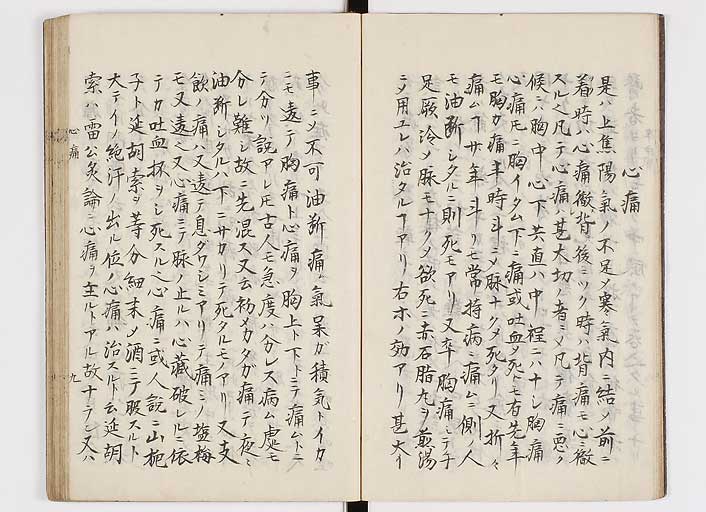 心痛
是ハ上焦陽氣ノ不足メ寒氣内ニ結メ前ニ
着時ハ心痛徹背後ニツク時ハ背痛モ心ニ徹
スルヘ凡テ心痛ハ甚大切ノ者ニメ凡テ痛ニ悪
候ニハ胸中心下共直ハ中程ニハナシ胸痛
心痛モニ胸イタム下ニ痛或吐血メ死トモ有先年
モ胸カ痛半時斗ニメ脉ナクメ死タリ又折々
痛ム丁廿年斗リモ常持病ニ痛ムニ側人
モ油断シタルニ則死モアリ又卒胸痛ニテ手
足厥冷メ脉モナクメ欲死ニ赤石脂丸ヲ煎湯
ニメ用ユレハ治タル丁アリ右ホノ効アリ甚大イ
事ニメ不可油断痛カ氣呆ガ積氣トイカ
ニモ遠テ胸痛ト心痛ヲ胸上ト下トニテ痛ムトニ
テ分リ説アレ𪜈古人モ急度ハ分レス病ム處モ
分レ難シ故ニ先混ス又云初メカタガ痛テ夜ニ
油断シタルハ下ニサカリテ死タルモノアリ又支
飲ノ痛ハ又遠テ息ダワシミアリテ痛ミノ塩梅
モ又遠ヘ又心痛ニテ脉ノ止ルハ心藏破レルニ依
テカ吐血抔ヲシ死スルヘ心痛ニ或人説ニ山梔
子ト延胡索ヲ等分細末メ酒ニテ服スルト
大テイノ絶汗ノ出ル位ノ心痛ハ治スルト云延胡
索ハ雷公炙論ニ心痛ヲ主ルトアル故ナラン又ハ
心痛
九